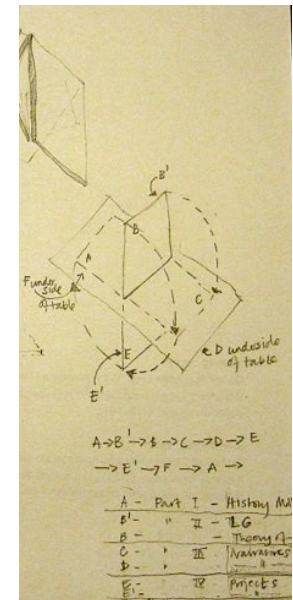 B'
B
A
F under
side
of table
C
D underside
of table
E
E'
A → B' → B → C → D → E
→ E' → F → A →
A - Part I - History
B' - " II - LG
B - Theory of
C - " III - Narratives
D - "
E - " IV - Projects
E' - "